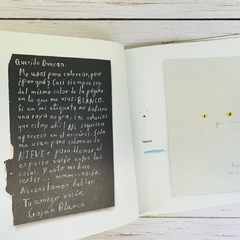 Querido Duncan:
Me usas para colorear, pero
¿Por qué? Casi siempre soy
del mismo color de la página
en la que me usas: BLANCO.
Si en mi etiqueta no hubiera
una raya negra, ¡ni sabrías
que estoy ahí! Ni siquiera
aparezco en el arcoíris. Solo
me usas para colorear la
NIEVE o para llenar el
espacio vacío entre las
cosas. Y esto me hace
sentir... mmm... vacío.
Necesitamos hablar.
Tu amigo vacío,
Crayón Blanco